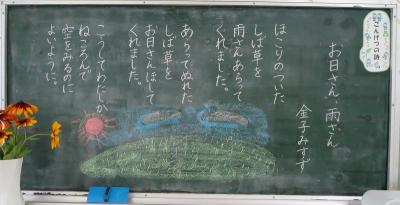 こんげつの詩
お日さん、雨さん
金子みすゞ
ほこりのついた
しば草を
雨さんあらって
くれました。
あらってぬれた
しば草を
お日さんほして
くれました。
こうしてわたしが
ねころんで
空をみるのに
よいように。